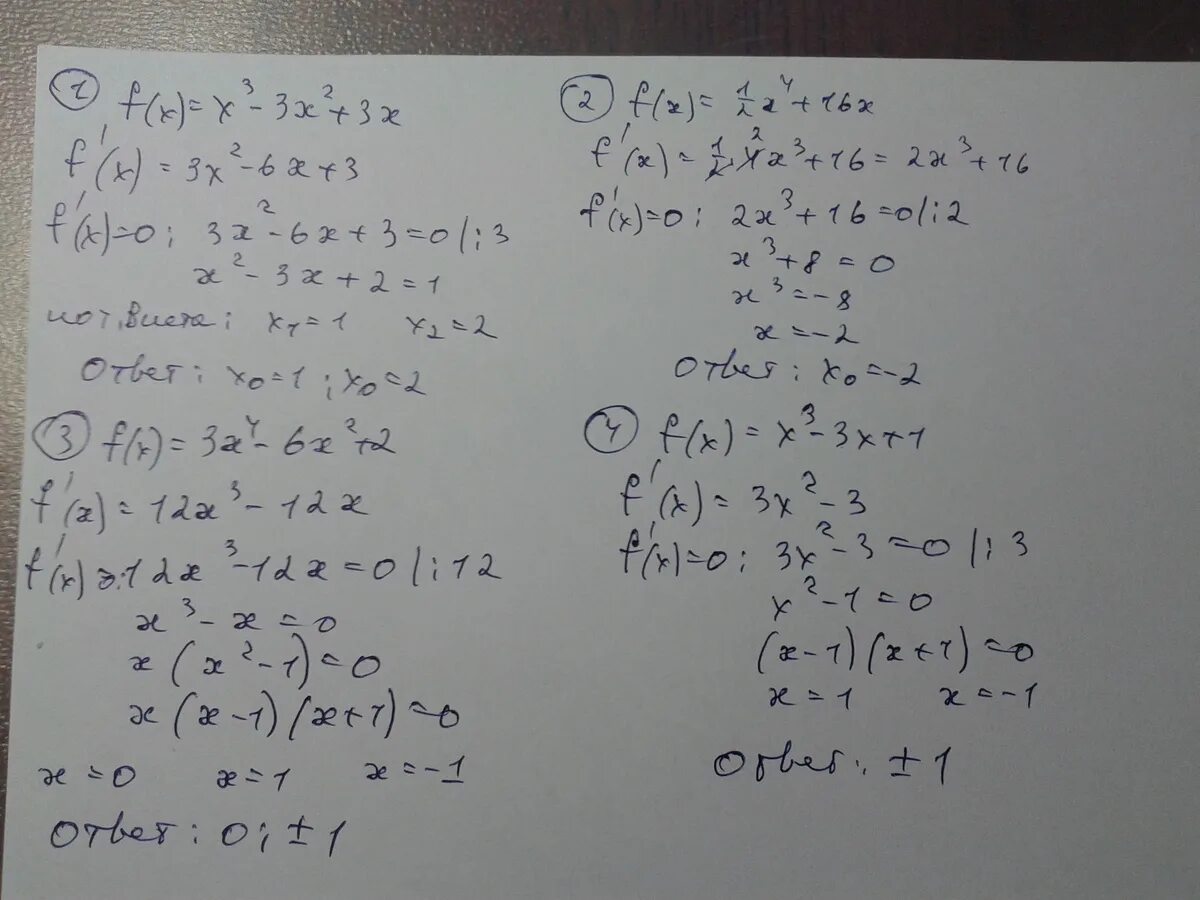 ① f(x) = x³ - 3x² + 3x
f'(x) = 3x² - 6x + 3
f'(x) = 0 ; 3x² - 6x + 3 = 0 | : 3
x² - 3x + 2 = 1
по т. Виета : x₁ = 1 x₂ = 2
Ответ : x₀ = 1 ; x₀ = 2
② f(x) = 1/2 x⁴ + 16x
f'(x) = 1/2 · 4x³ + 16 = 2x³ + 16
f'(x) = 0 ; 2x³ + 16 = 0 | : 2
x³ + 8 = 0
x³ = -8
x = -2
Ответ : x₀ = -2
③ f(x) = 3x⁴ - 6x² + 2
f'(x) = 12x³ - 12x
f'(x) = 0 ; 12x³ - 12x = 0 | : 12
x³ - x = 0
x (x² - 1) = 0
x (x - 1) (x + 1) = 0
x = 0 x = 1 x = -1
Ответ : 0 ; ± 1
④ f(x) = x³ - 3x + 1
f'(x) = 3x² - 3
f'(x) = 0 ; 3x² - 3 = 0 | : 3
x² - 1 = 0
(x - 1) (x + 1) = 0
x = 1 x = -1
Ответ : ± 1